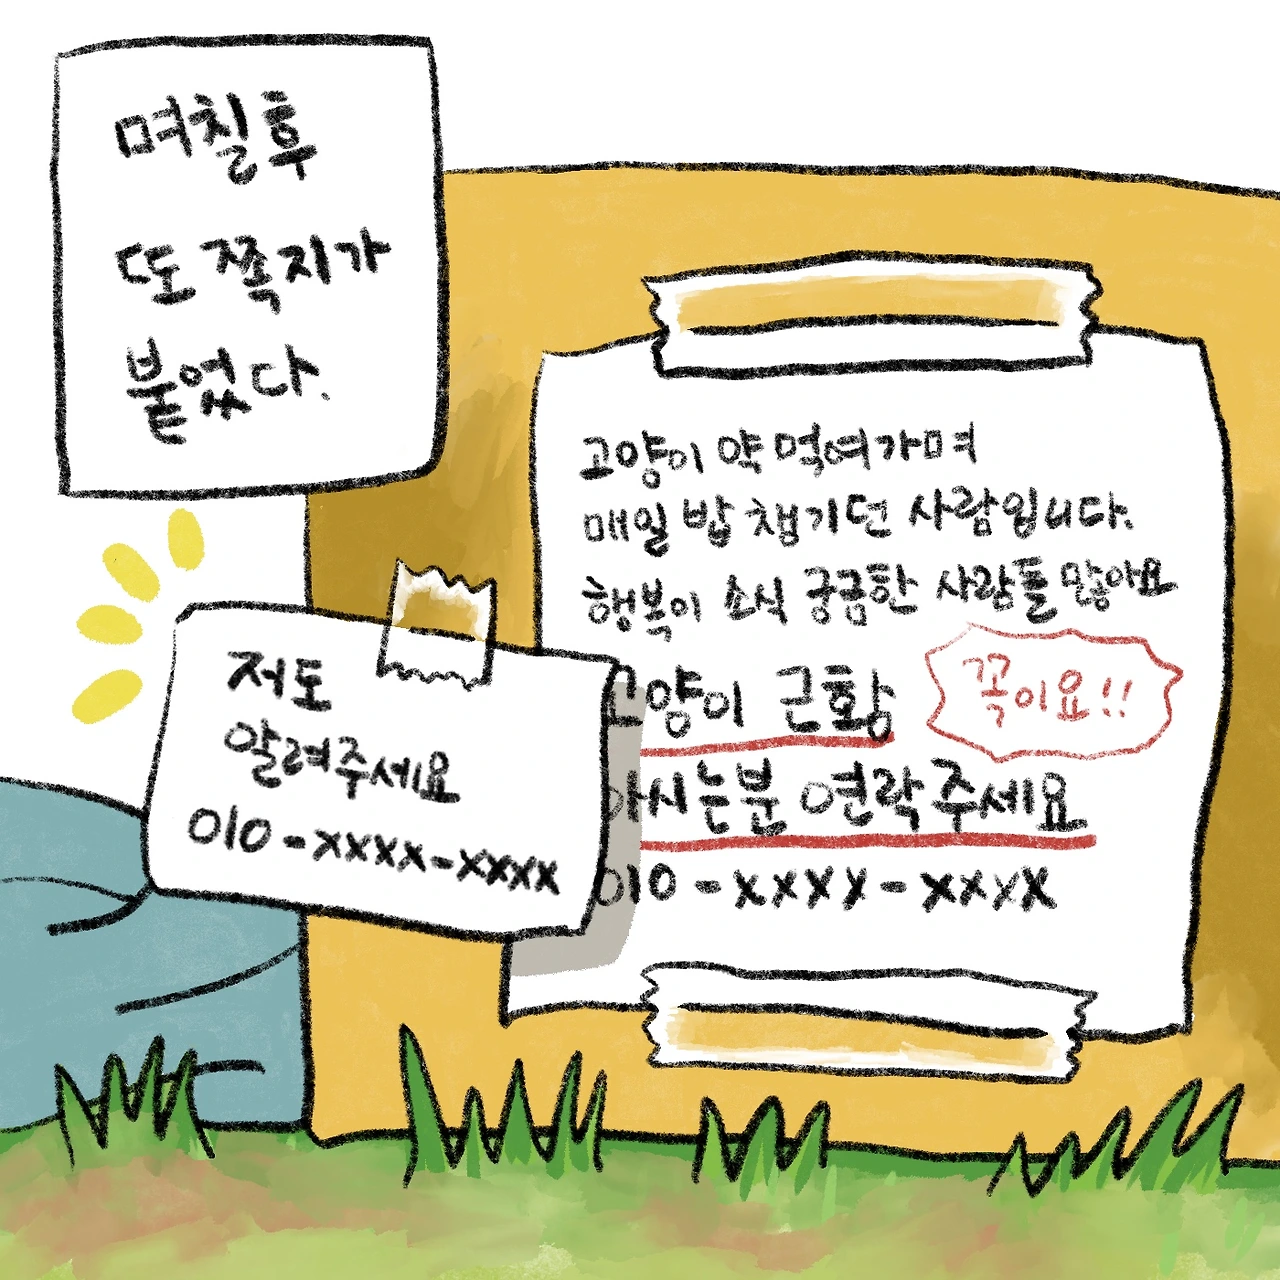 며칠후
또 쪽지가
붙었다.
고양이 약 먹여가며
매일 밥 챙기던 사람입니다.
행복이 소식 궁금한 사람들 많아요
고양이 근황
꼭이요!!
아시는분 연락주세요
010-xxxx-xxxx
저도
알려주세요
010-xxxx-xxxx